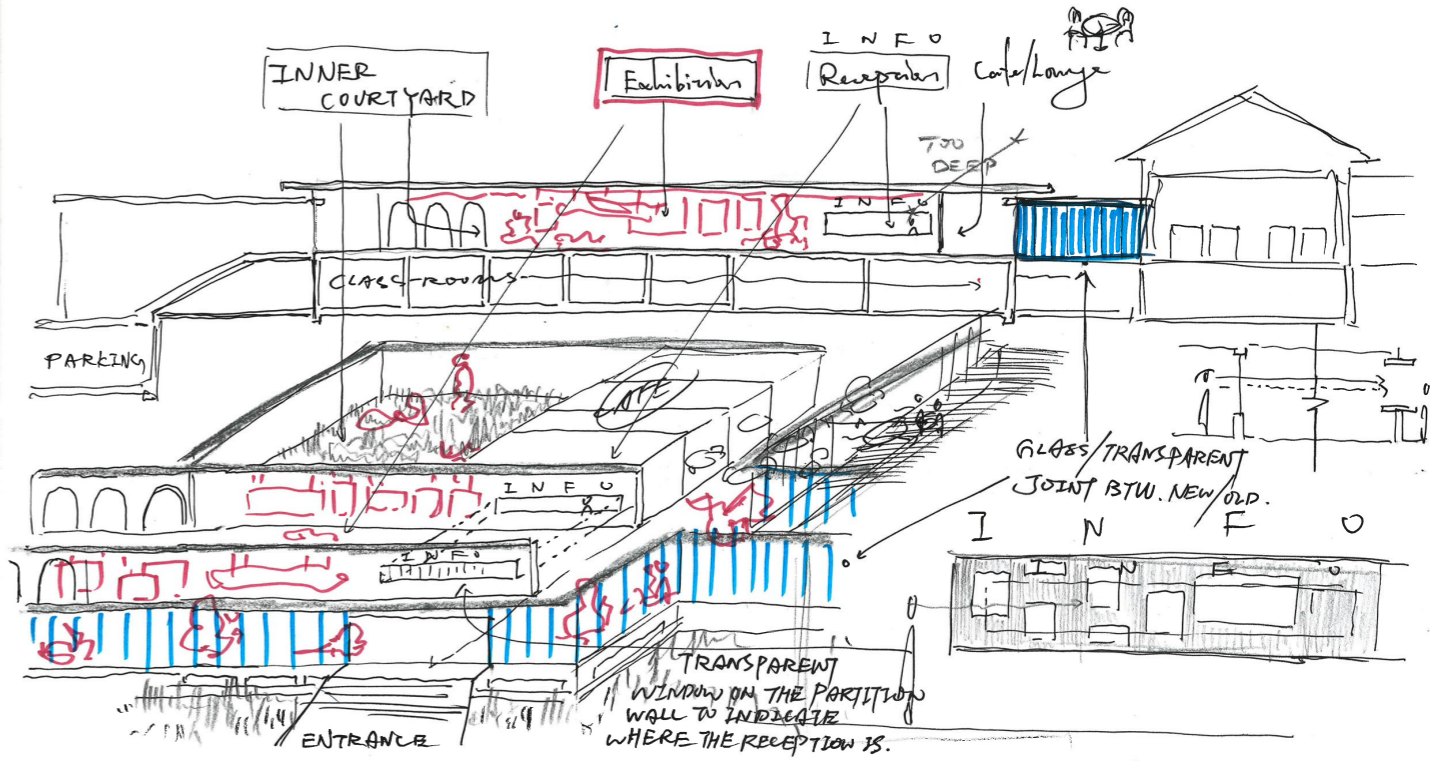 INNER
COURTYARD
Exhibition
I N F O
Reception
Cafe/Lounge
TOO
DEEP
I N F O
CLASS-ROOMS
PARKING
CAFE
GLASS/TRANSPARENT
JOINT BTW. NEW/OLD.
I N F O
I N F O
I N F O
I N F O
TRANSPARENT
WINDOW ON THE PARTITION
WALL TO INDICATE
WHERE THE RECEPTION IS.
ENTRANCE